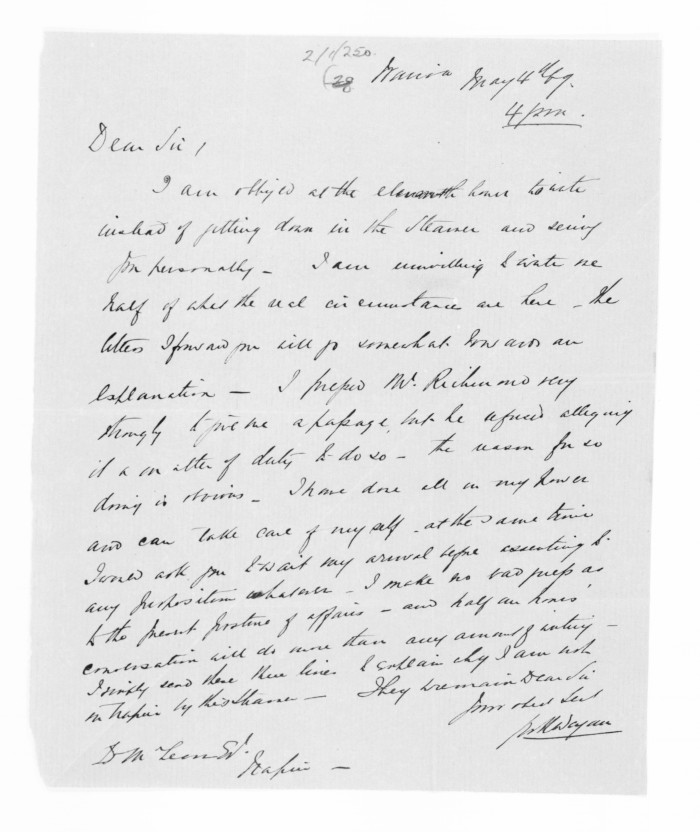 2/1/250.
28
Wairoa May 4th 69.
4 pm.
Dear Sir,
I am obliged at the eleventh hour to write
instead of getting down in the Steamer and seeing
you personally - I am unwilling to write one
half of what the real circumstances are here - the
letters I forward you will go somewhat towards an
explanation - I pressed Mr. Richmond very
strongly to give me a passage, but he refused alleging
it a matter of duty to do so - the reason for so
doing is obvious - I have done all in my power
and can take care of myself - at the same time
I would ask you to wait my arrival before assenting to
any proposition whatever - I make no bad press as
to the present posture of affairs - and half an hours'
conversation will do more than any amount of writing -
I simply send these three lines to explain why I am not
in Napier by this Steamer - I beg to remain Dear Sir
Your obed Servt
D McLean Esq.
Napier -